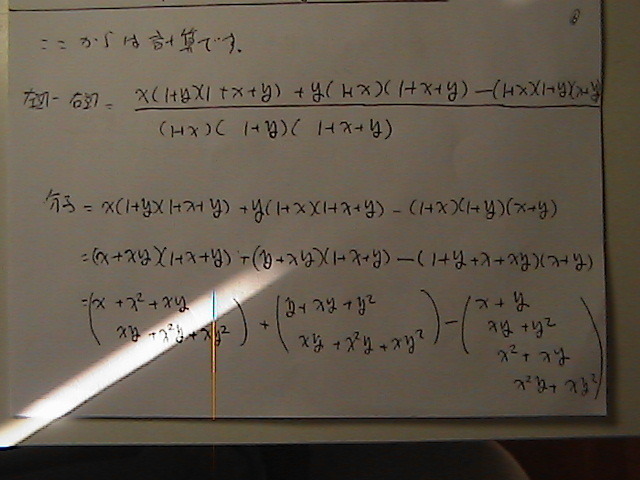 ここからは計算です。
左辺-右辺 = x(1+y)(1+x+y) + y(1+x)(1+x+y) - (1+x)(1+y)(x+y)
(1+x)(1+y)(1+x+y)
分子 = x(1+y)(1+x+y) + y(1+x)(1+x+y) - (1+x)(1+y)(x+y)
= (x+xy)(1+x+y) + (y+xy)(1+x+y) - (1+y+x+xy)(x+y)
= (x + x² + xy + (y + xy + y² - (x + y
xy + x²y + xy²) xy + x²y + xy²) xy + y²
x² + xy
x²y + xy²)